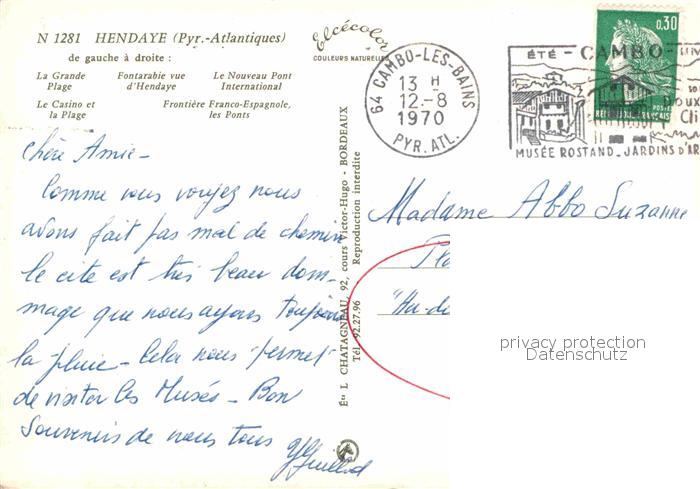 N 1281 HENDAYE (Pyr.-Atlantiques)
de gauche à droite :
La Grande Plage
Fontarabie vue d'Hendaye
Le Nouveau Pont International
Le Casino et la Plage
Frontière Franco-Espagnole, les Ponts
Elcécolor
COULEURS NATURELLES
64 CAMBO-LES-BAINS
13 H
12-8
1970
PYR. ATL.
ÉTÉ - CAMBO -
MUSÉE ROSTAND_JARDINS d'AR
0,30
POSTES
REPUBLIQUE FRANÇAISE
Chère Amie -
Comme vous voyez nous
avons fait pas mal de chemin
le cite est très beau dom-
mage que nous ayons toujours
la pluie - Cela nous permet
de visiter les Musés - Bon
Souvenirs de nous tous
Éts L. CHATAGNEAU, 92, cours Victor-Hugo - BORDEAUX
Tél. 92.27.96 Reproduction interdite
Madame Abbo Suzanne
privacy protection
Datenschutz